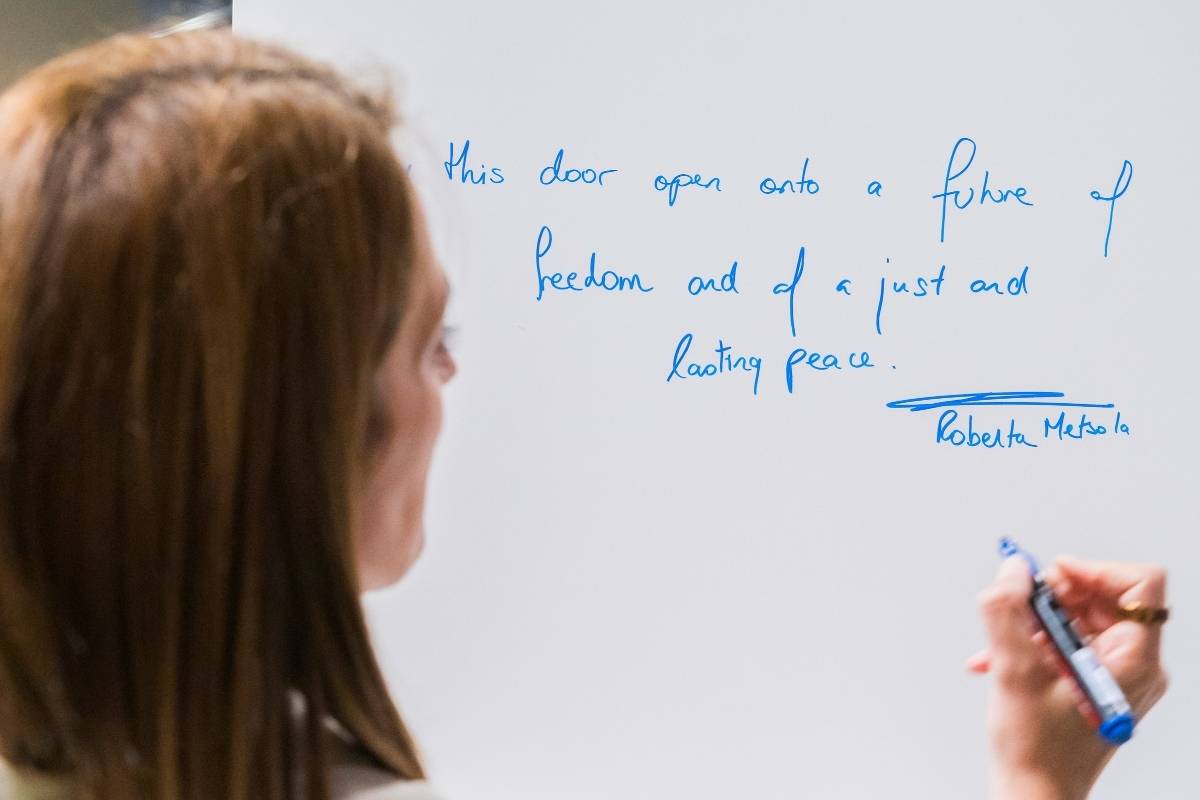 this door open onto a future of
freedom and of a just and
lasting peace.
Roberta Metsola